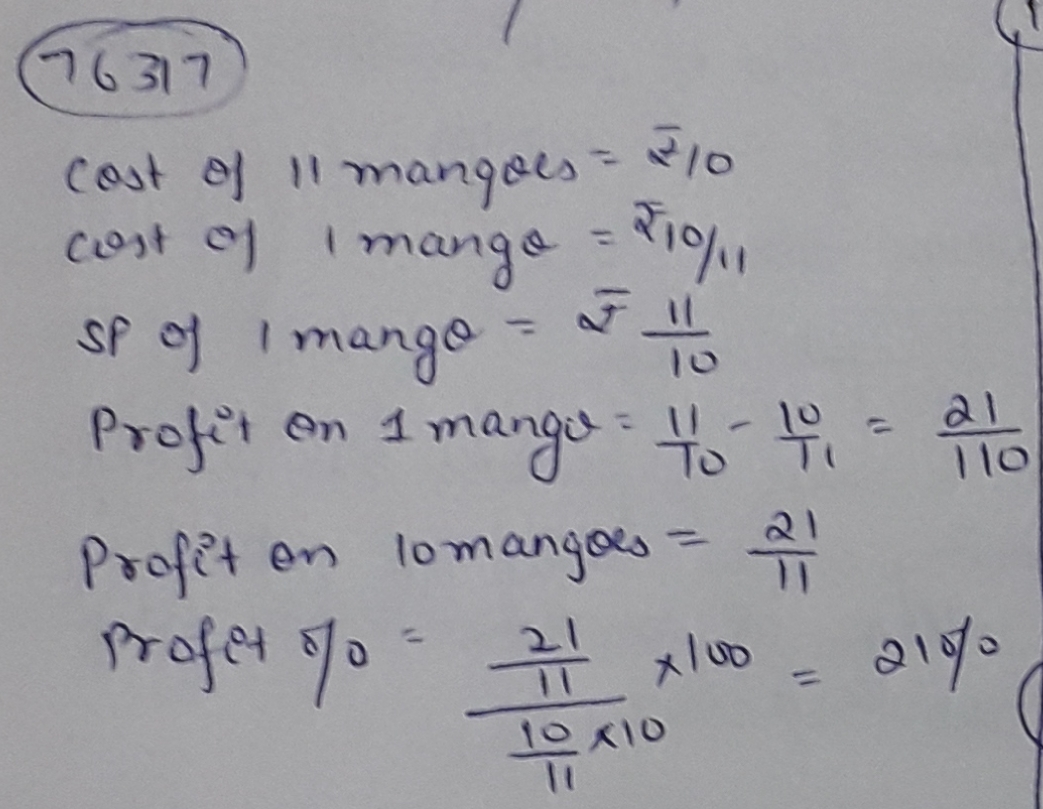 76317
Cost of 11 mangoes = ₹10
Cost of 1 mango = ₹10/11
SP of 1 mango = ₹ 11/10
Profit on 1 mango = 11/10 - 10/11 = 21/110
Profit on 10 mangoes = 21/11
Profit % = 21/11 / 10/11 x 10 x 100 = 21%